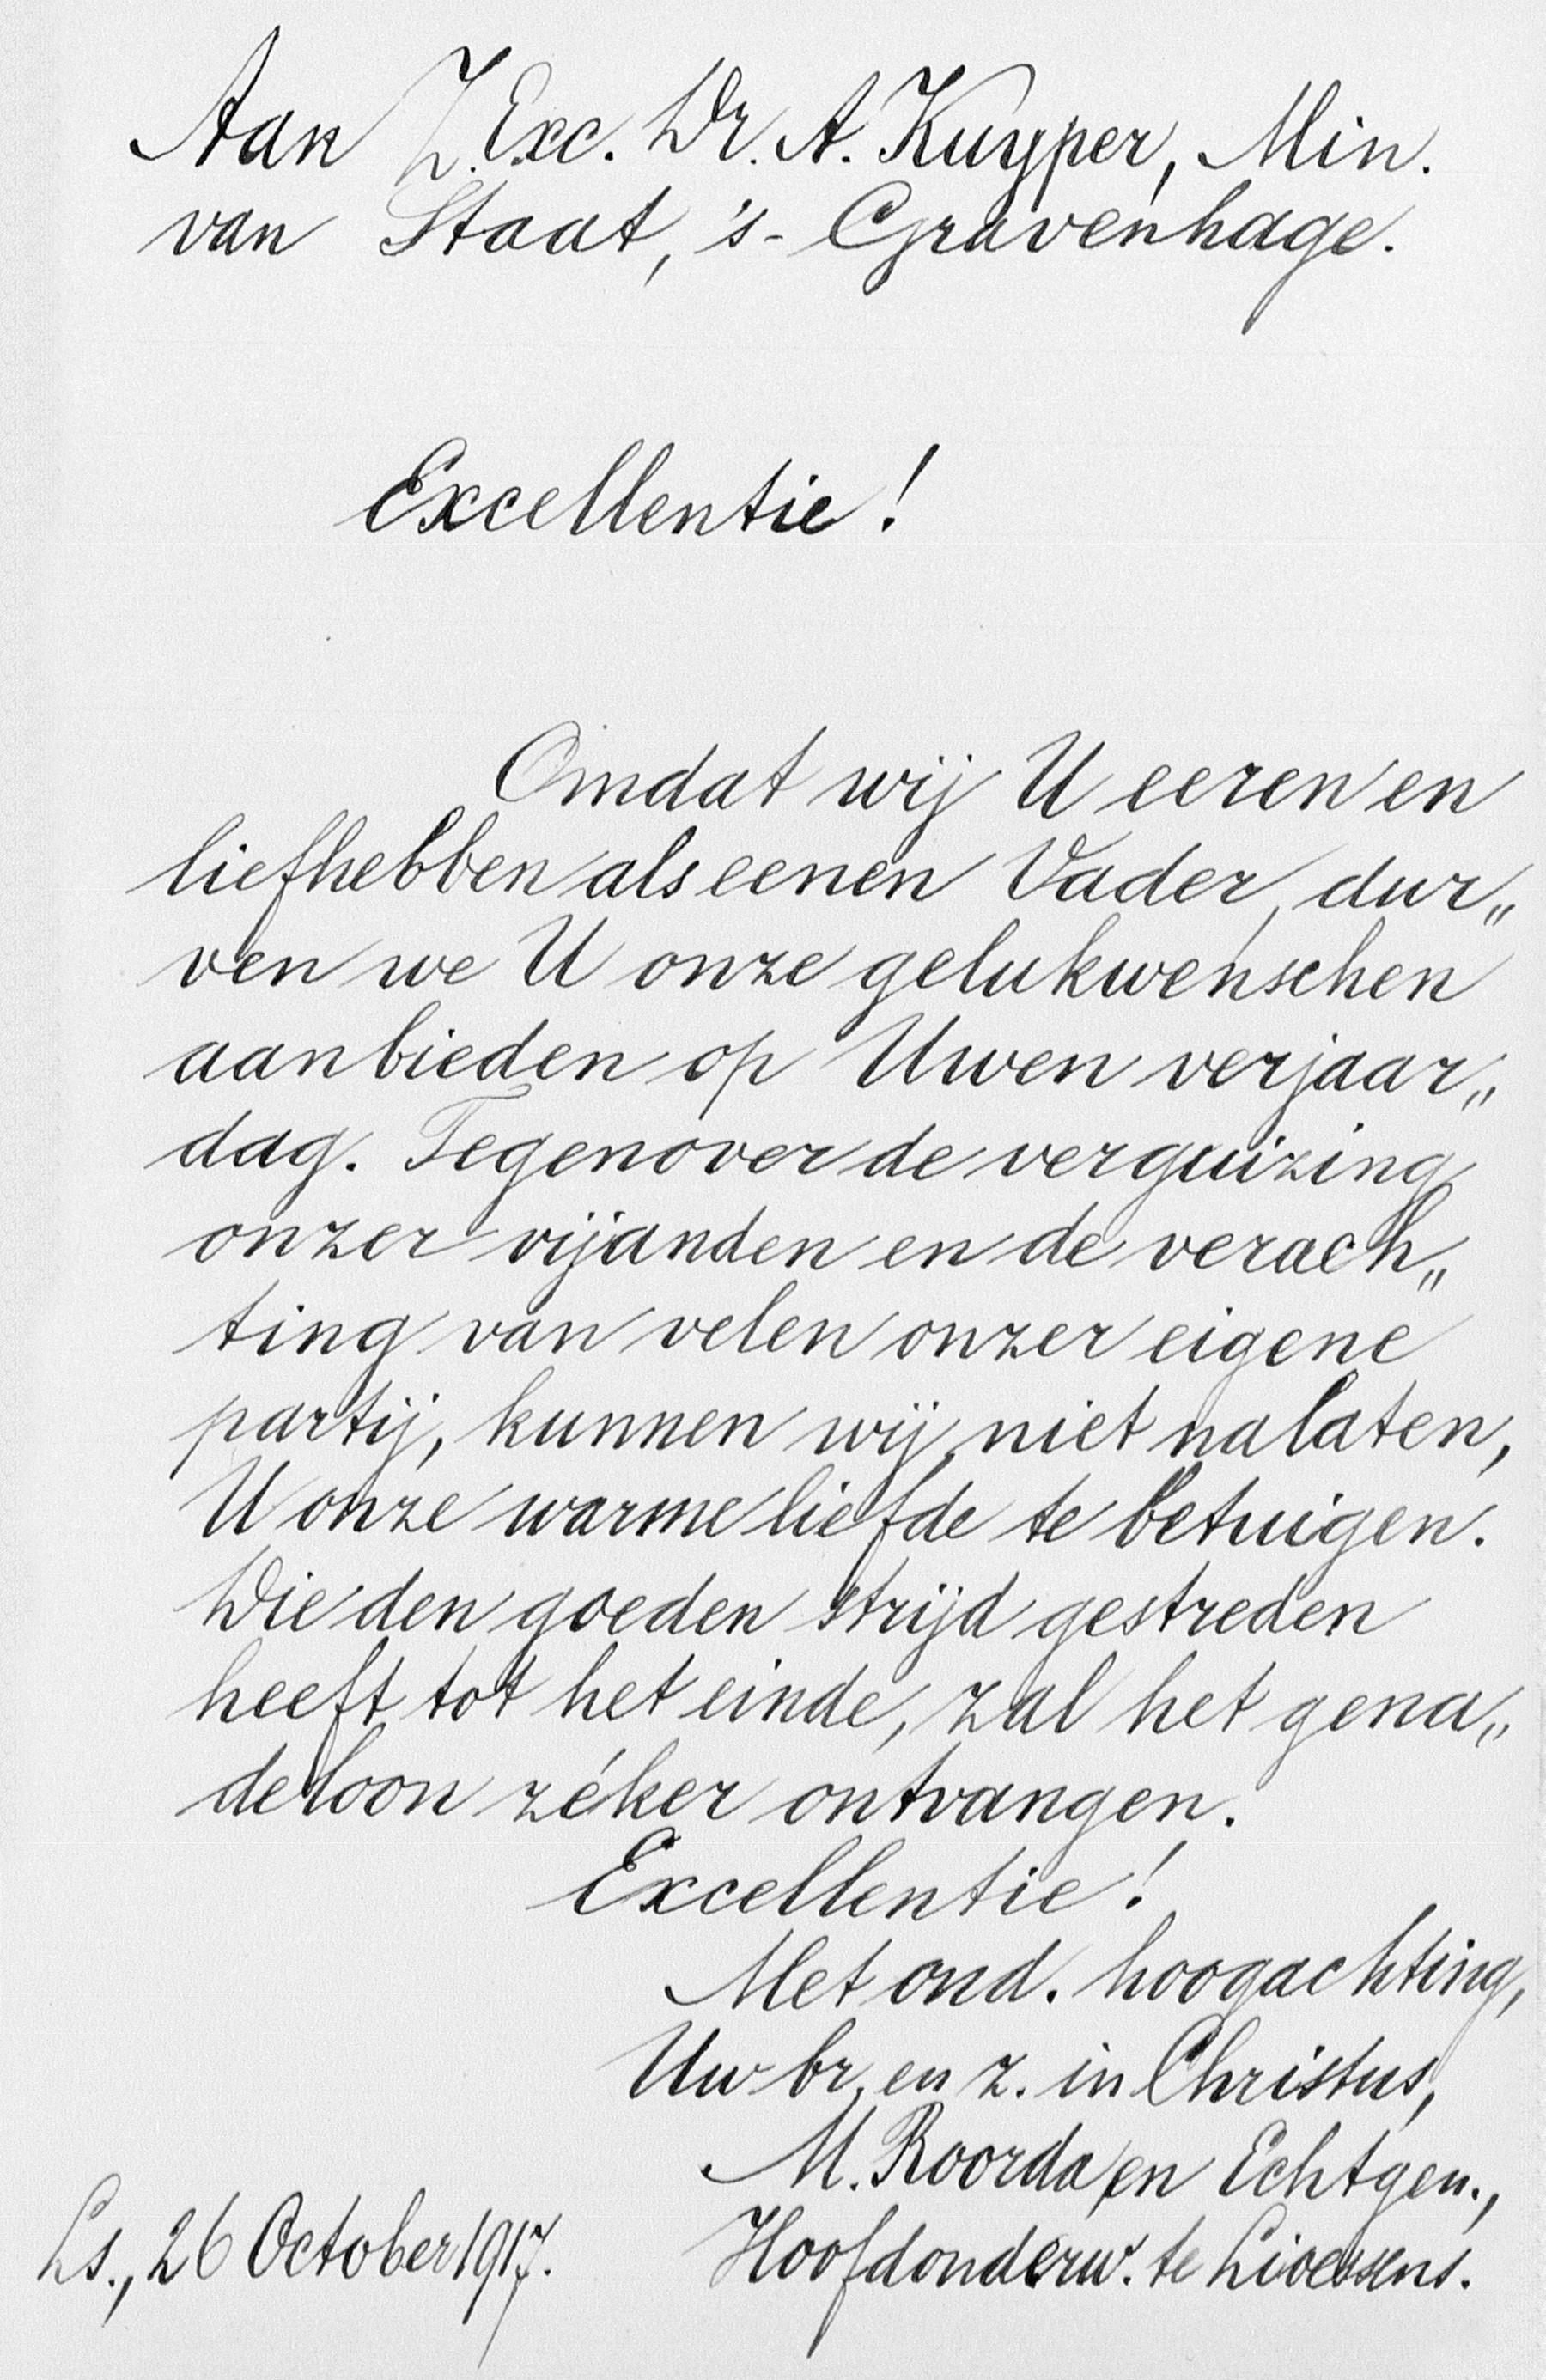 Aan Z. Exc. Dr. A. Kuyper, Min.
van Staat, 's-Gravenhage.
Excellentie!
Omdat wij U eeren en
liefhebben als eenen Vader, dur„
ven we U onze gelukwenschen
aanbieden op Uwen verjaar„
dag. Tegenover de verguizing
onzer vijanden en de verach„
ting van velen onzer eigene
partij, kunnen wij niet nalaten,
U onze warme liefde te betuigen.
Die den goeden strijd gestreden
heeft tot het einde, zal het gena„
deloon zéker ontvangen.
Excellentie!
Met ond. hoogachting,
Uw br. en z. in Christus,
M. Roorda en Echtgen.,
Hoofdonderw. te Lioessens.
Ls., 26 October 1917.